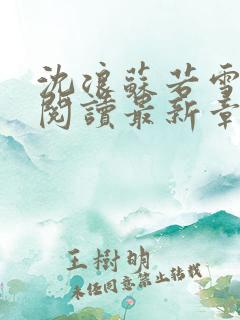 沈浪蘇若雪
閱讀最新章
王樹明
未经同意禁止转载